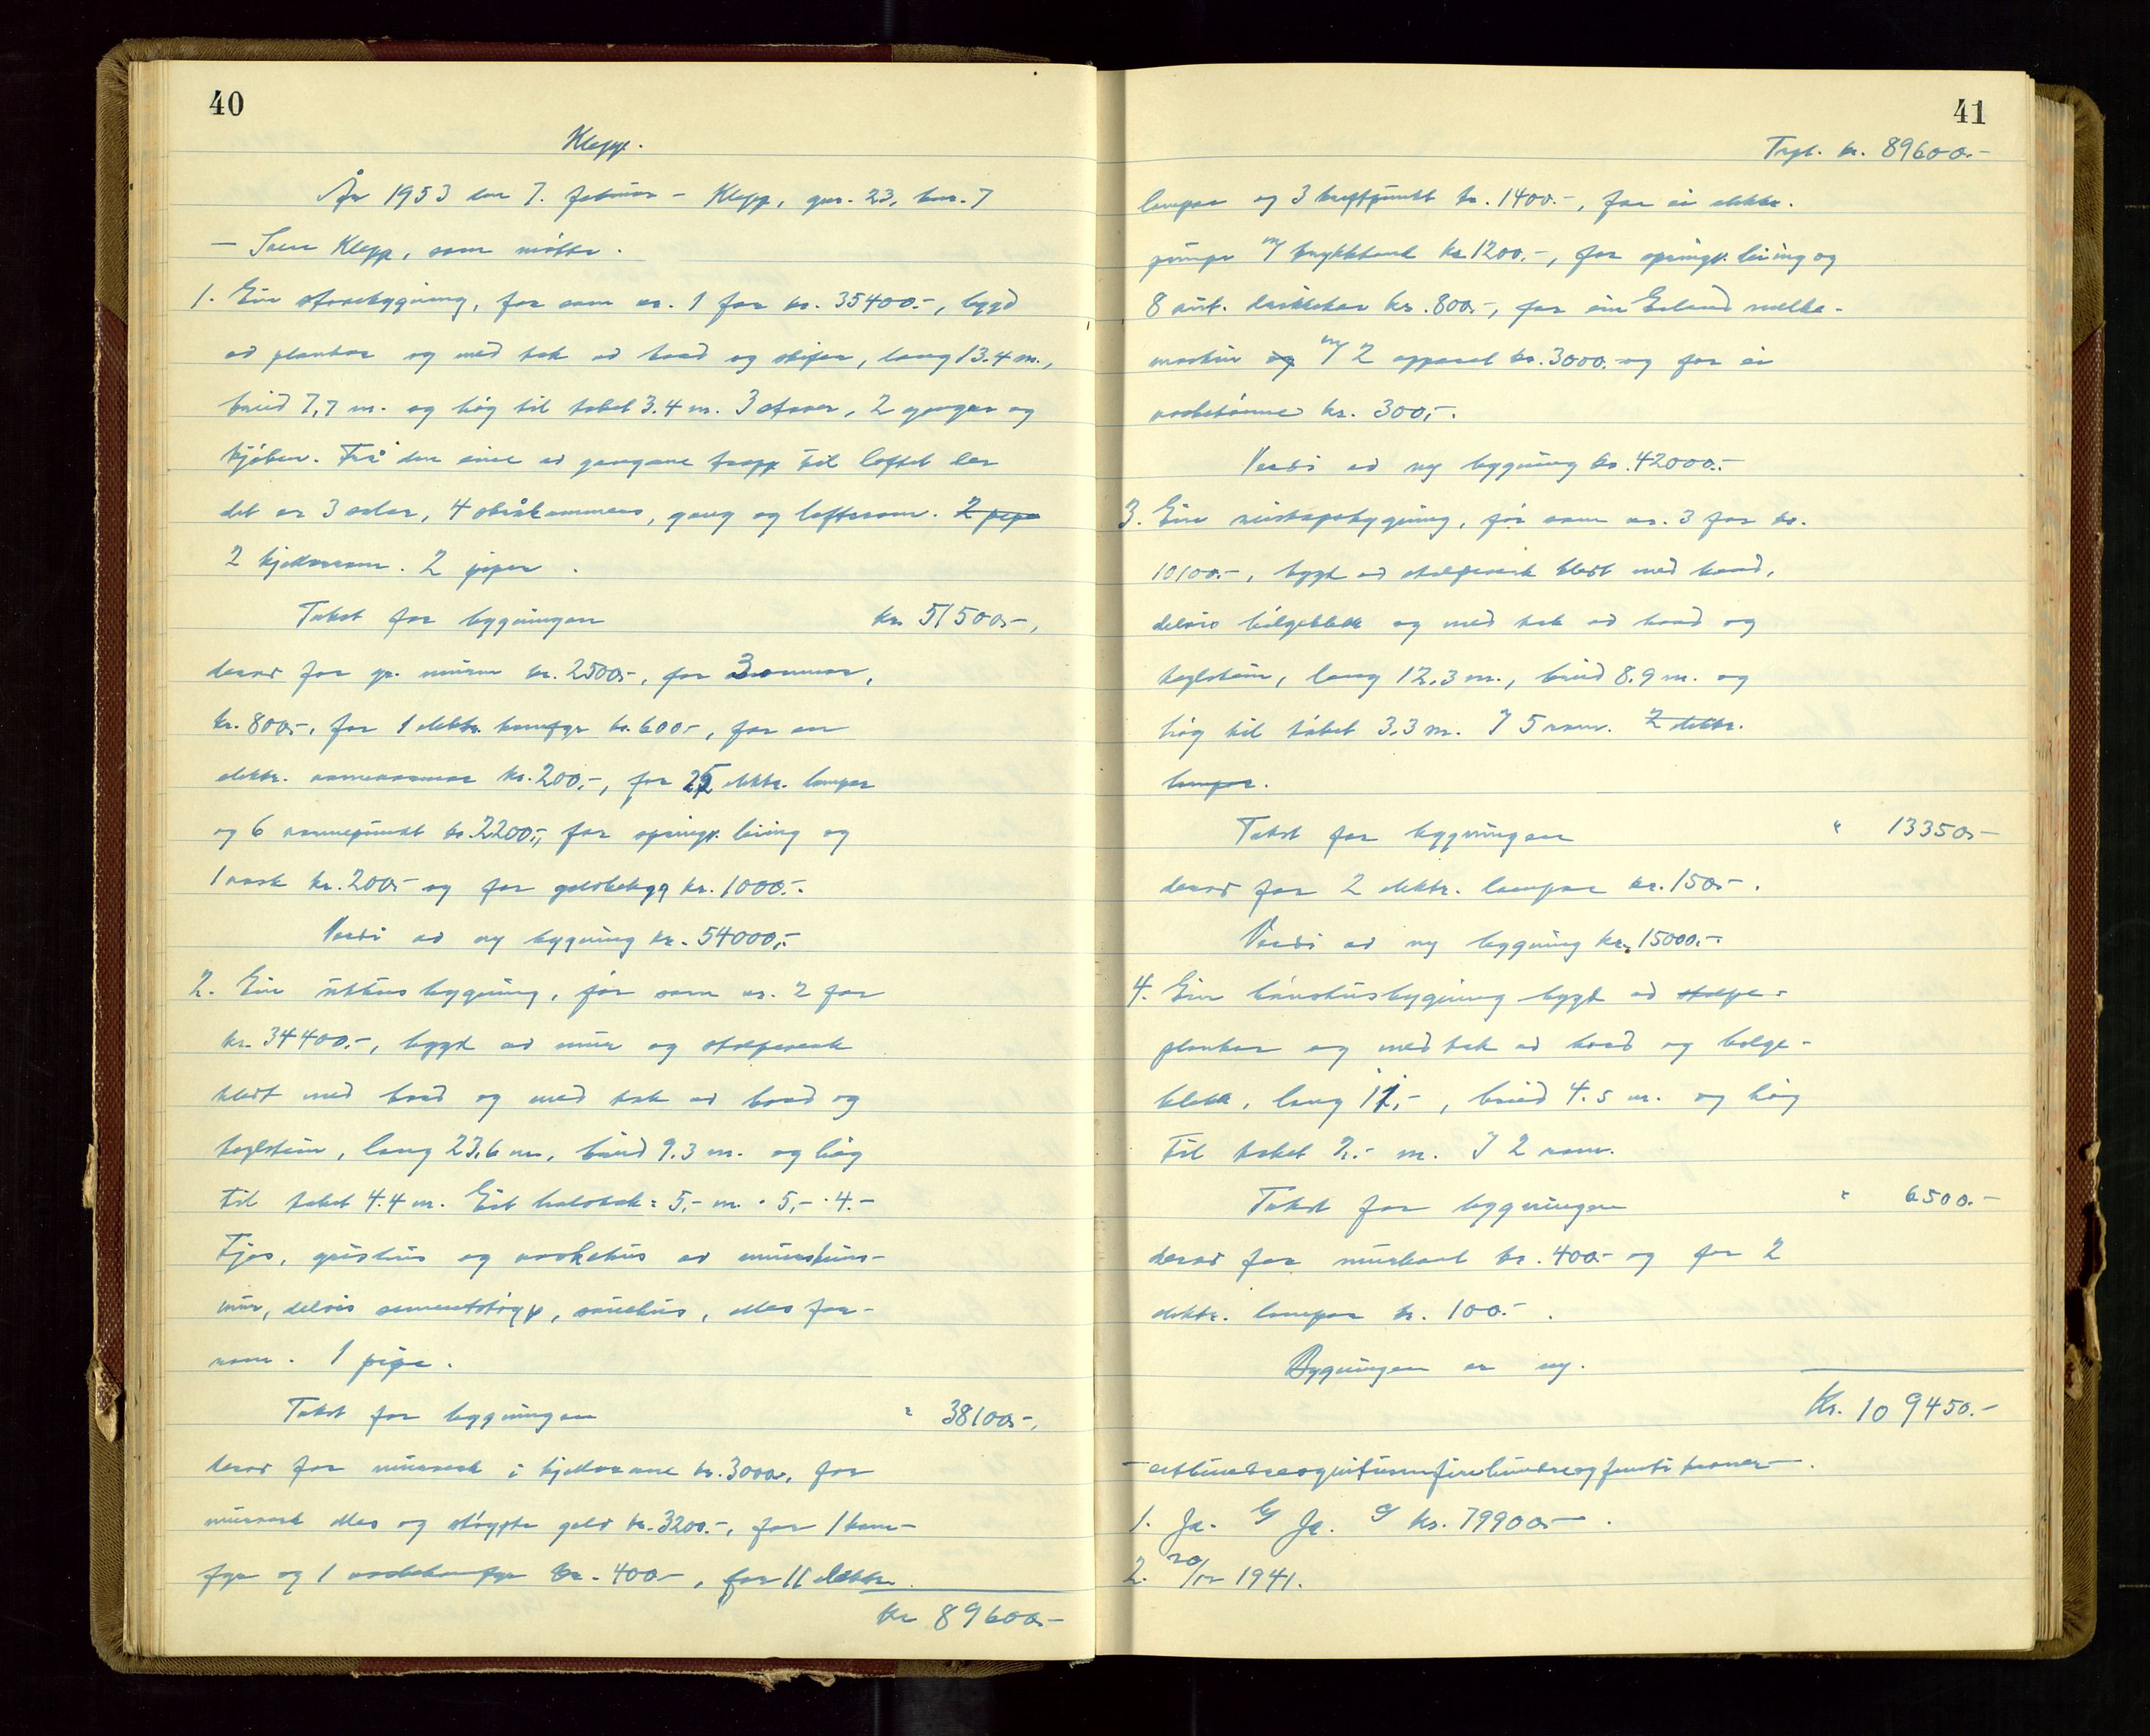 40
Klepp.
År 1953 den 7. februar – Klepp, gnr. 23, bnr. 7
– Sven Klepp, som møtte.
1. Ein stovebygning, før som nr. 1 for kr. 35400.-, bygd
av plankar og med tak av bord og skifer, lang 13.4 m.,
breid 7,7 m. og høg til taket 3.4 m. 3 stover, 2 gangar og
kjøken. Frå den eine av gangane trapp til loftet der
det er 3 salar, 4 stråkammers, gang og loftsrom. 2 pipe
2 kjellarrom. 2 piper.
Takst for bygningen kr. 51500.-,
derav for gr. muren kr. 2500.-, for 3 omnar,
kr. 800.-, for 1 elektr. komfyr kr. 600.-, for en
elektr. varmeomnar kr. 200,-, for 22 elektr. lampar
og 6 varmepunkt kr. 2200.-, for springv. leiing og
1 vask kr. 200.- og for golvbelegg kr. 1000.-.
Verdi av ny bygning kr. 54000,-.
2. Ein uthusbygning, før som nr. 2 for
kr. 34400.-, bygd av mur og stolpeverk
kledt med bord og med tak av bord og
teglstein, lang 23,6 m., breid 9.3 m. og høg
til taket 4.4 m. Eit halvtak: 5,- m. · 5,- · 4.-
Fjøs, grishus og vaskehus av murstens-
mur, delvis sementstøypt, sauehus, elles for-
rom. 1 pipe.
Takst for bygningen " 38100.-,
derav for murverk i kjellarane kr. 3000.-, for
murverk elles og støypte golv kr. 3200.-, for 1 kom-
fyr og 1 vaskekomfyr kr. 400.-, for 11 elektr.
kr 89600.-
41
Trpt. kr. 89600.-
lampar og 3 kraftpunkt kr. 1400.-, for ei elektr.
pumpe m/ trykktank kr. 1200.-, for springv. leiing og
8 aut. drikkekar kr. 800.-, for ein Eeland melke-
maskin og m/ 2 apparat kr. 3000.- og for ei
vasketønne kr. 300,-.
Verdi av ny bygning kr. 42000.-
3. Ein reiskapsbygning, før som nr. 3 for kr.
10100.-, bygd av stolpeverk kledt med bord,
delvis bølgeblekk og med tak av bord og
teglstein, lang 12.3 m., breid 8.9 m. og
høg til taket 3.3 m. I 5 rom. 2 elektr.
lampar.
Takst for bygningen " 13350.-
derav for 2 elektr. lampar kr. 150.-.
Verdi av ny bygning kr. 15000.-.
4. Ein hønsehusbygning bygd av stolpe-
plankar og med tak av bord og bølge-
blekk, lang 11,-, breid 4.5 m. og høg
til taket 2.- m. I 2 rom.
Takst for bygningen " 6500.-
derav for murkant kr. 400.- og for 2
elektr. lampar kr. 100.-.
Bygningen er ny.
Kr. 109450.-
– etthundreognitusenfirehundreogfemti kroner –.
1. Ja. b/ Ja. c/ kr. 79900.-.
2. 20/12 1941.